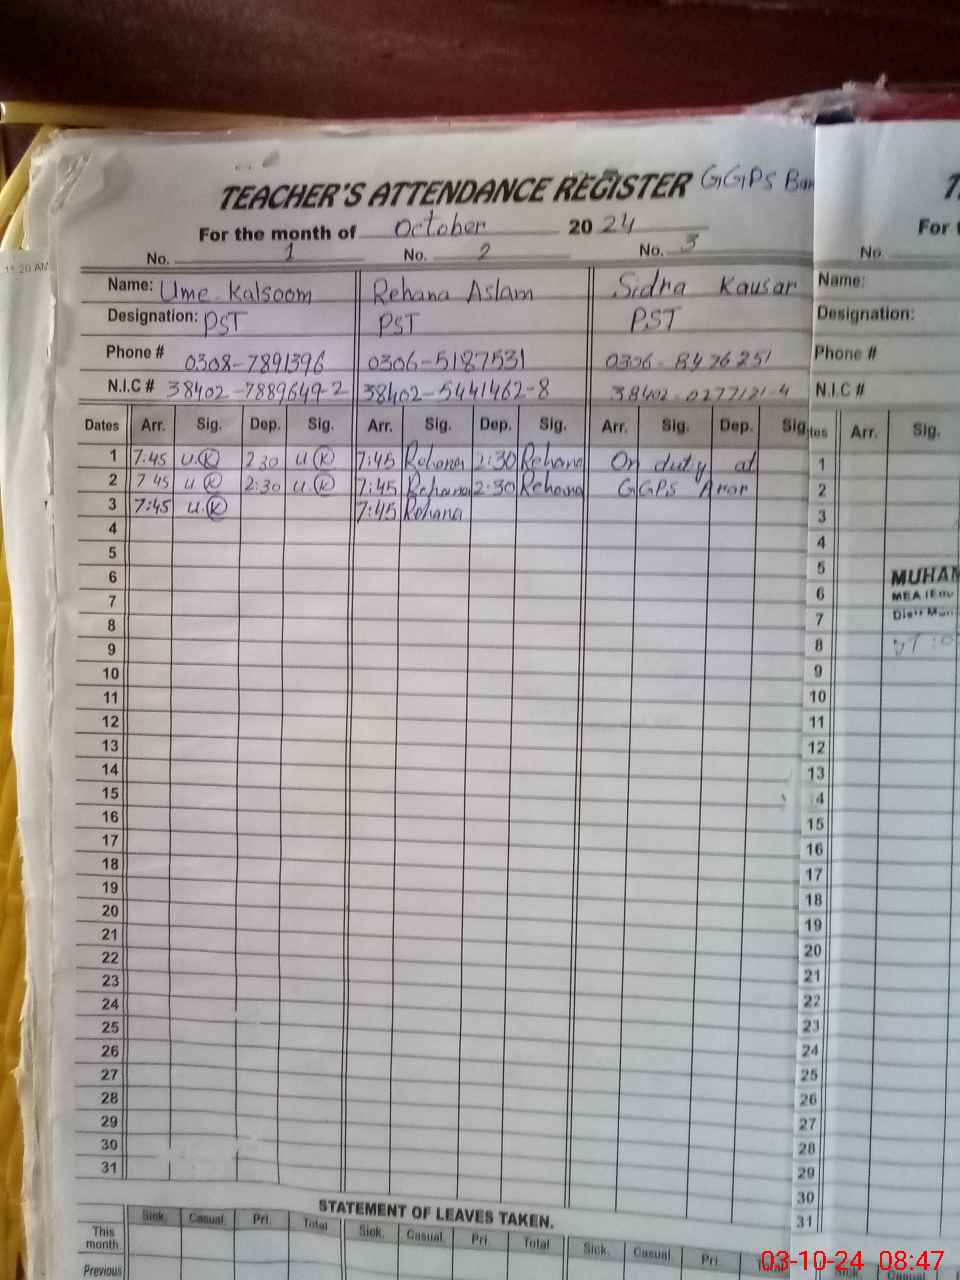 11:20 AM
TEACHER'S ATTENDANCE REGISTER GGPS
For the month of October 2024
No. 1 No. 2 No. 3
Name: Ume Kalsoom Rehana Aslam Sidra Kausar
Designation: PST PST PST
Phone # 0308-7891396 0306-5187531 0306-8476251
N.I.C # 38402-7889649-2 38402-5441462-8 38402-0277121-4
Dates Arr. Sig. Dep. Sig. Arr. Sig. Dep. Sig. Arr. Sig. Dep. Sig
1 7:45 U.K 2 30 U K 7:45 Rehana 2:30 Rehana On duty at
2 7 45 U K 2:30 U.K 7:45 Rehana 2:30 Rehana GGPS Arar
3 7:45 U.K 7:45 Rehana
4
5
6
7
8
9
10
11
12
13
14
15
16
17
18
19
20
21
22
23
24
25
26
27
28
29
30
31
STATEMENT OF LEAVES TAKEN.
Sick. Casual. Pri. Total Sick. Casual. Pri. Total Sick. Casual. Pri. Total
This month
Previous
For
No.
Name:
Designation:
Phone #
N.I.C #
tes Arr. Sig.
1
2
3
4
5
MUHAM
6
MEA
7
8
9
10
11
12
13
4
15
16
17
18
19
20
21
22
23
24
25
26
27
28
29
30
31
Sick. Casual
03-10-24 08:47